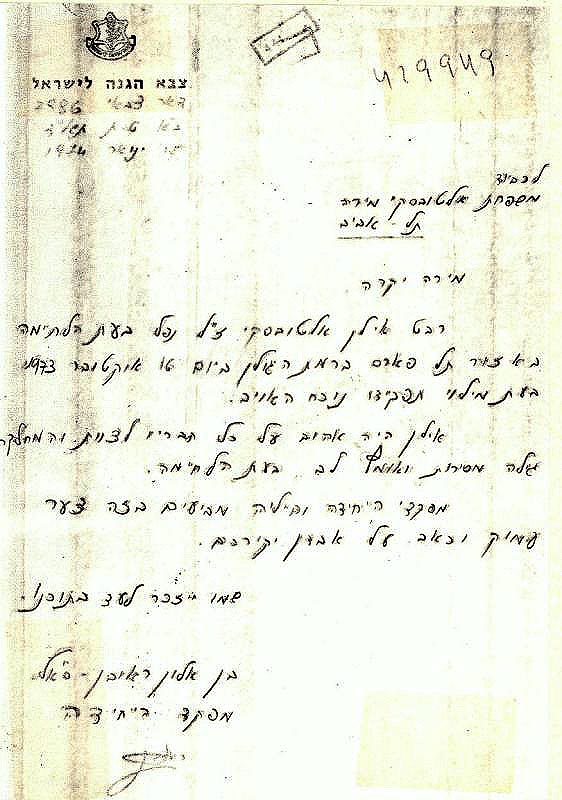 419949
צבא הגנה לישראל
דאר צבאי 2986
כ"א טבת תשל"ד
ינואר 1974
לכבוד
משפחת אלטובסקי מירה
תל-אביב
מירה יקרה
רבט אילן אלטובסקי ז"ל נפל בעת הלחימה
באזור תל פארס ברמת הגולן ביום טו אוקטובר 1973
בעת מילוי תפקידו נוכח האויב.
אילן היה אהוב על כל חבריו לצוות והמחלקה
גילה מסירות ואומץ לב בעת הלחימה.
מפקדי היחידה וחייליה מביעים בזה צער
עמוק וכאב על אבדן יקירכם.
שמו ייזכר לעד בתוכנו.
בן אלון ראובן - סא"ל
מפקד היחידה